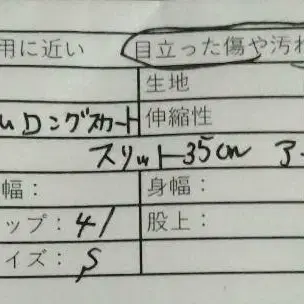 用に近い 目立った傷や汚れ
生地
ロングスカート 伸縮性
スリット35cm ア
幅： 身幅：
ップ：41 股上：
イズ：S